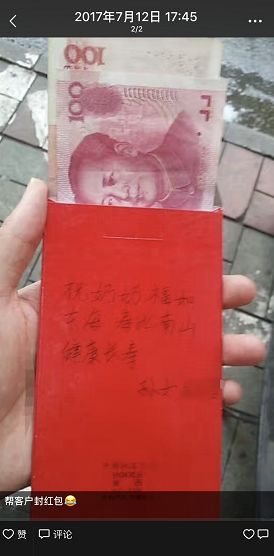 2017年7月12日 17:45
2/2
100
100
祝奶奶福如
东海 寿比南山
健康长寿
孙女
帮客户封红包😂
赞
评论